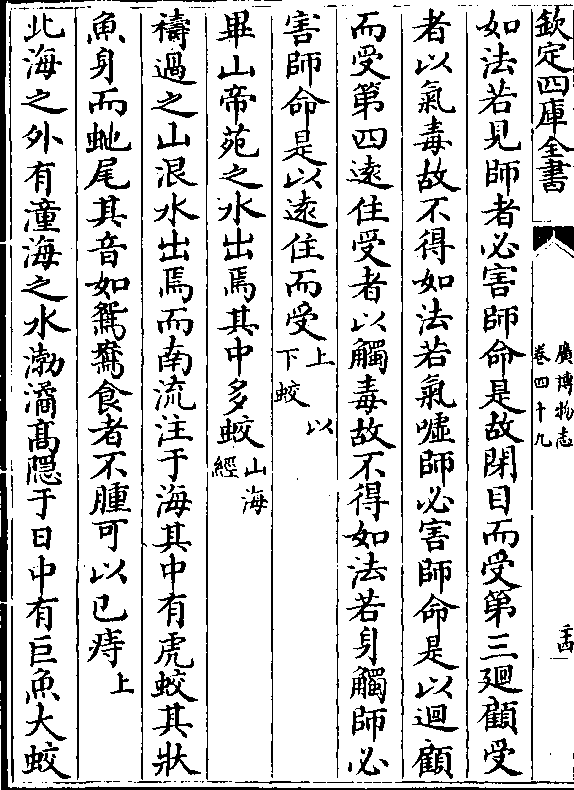 欽定四庫全書
廣博物志
卷四十九
如法若見師者必害師命是故閉目而受第三廻顧受
者以氣毒故不得如法若氣噓師必害師命是以迴顧
而受第四遠住受者以觸毒故不得如法若身觸師必
害師命是以遠住而受
以上
下蛟
畢山帝苑之水出焉其中多蛟
山海
經
禱過之山泿水出焉而南流注于海其中有虎蛟其狀
魚身而虵尾其音如鴛鴦食者不腫可以已痔上
北海之外有潼海之水渤潏高隱于日中有巨魚大蛟